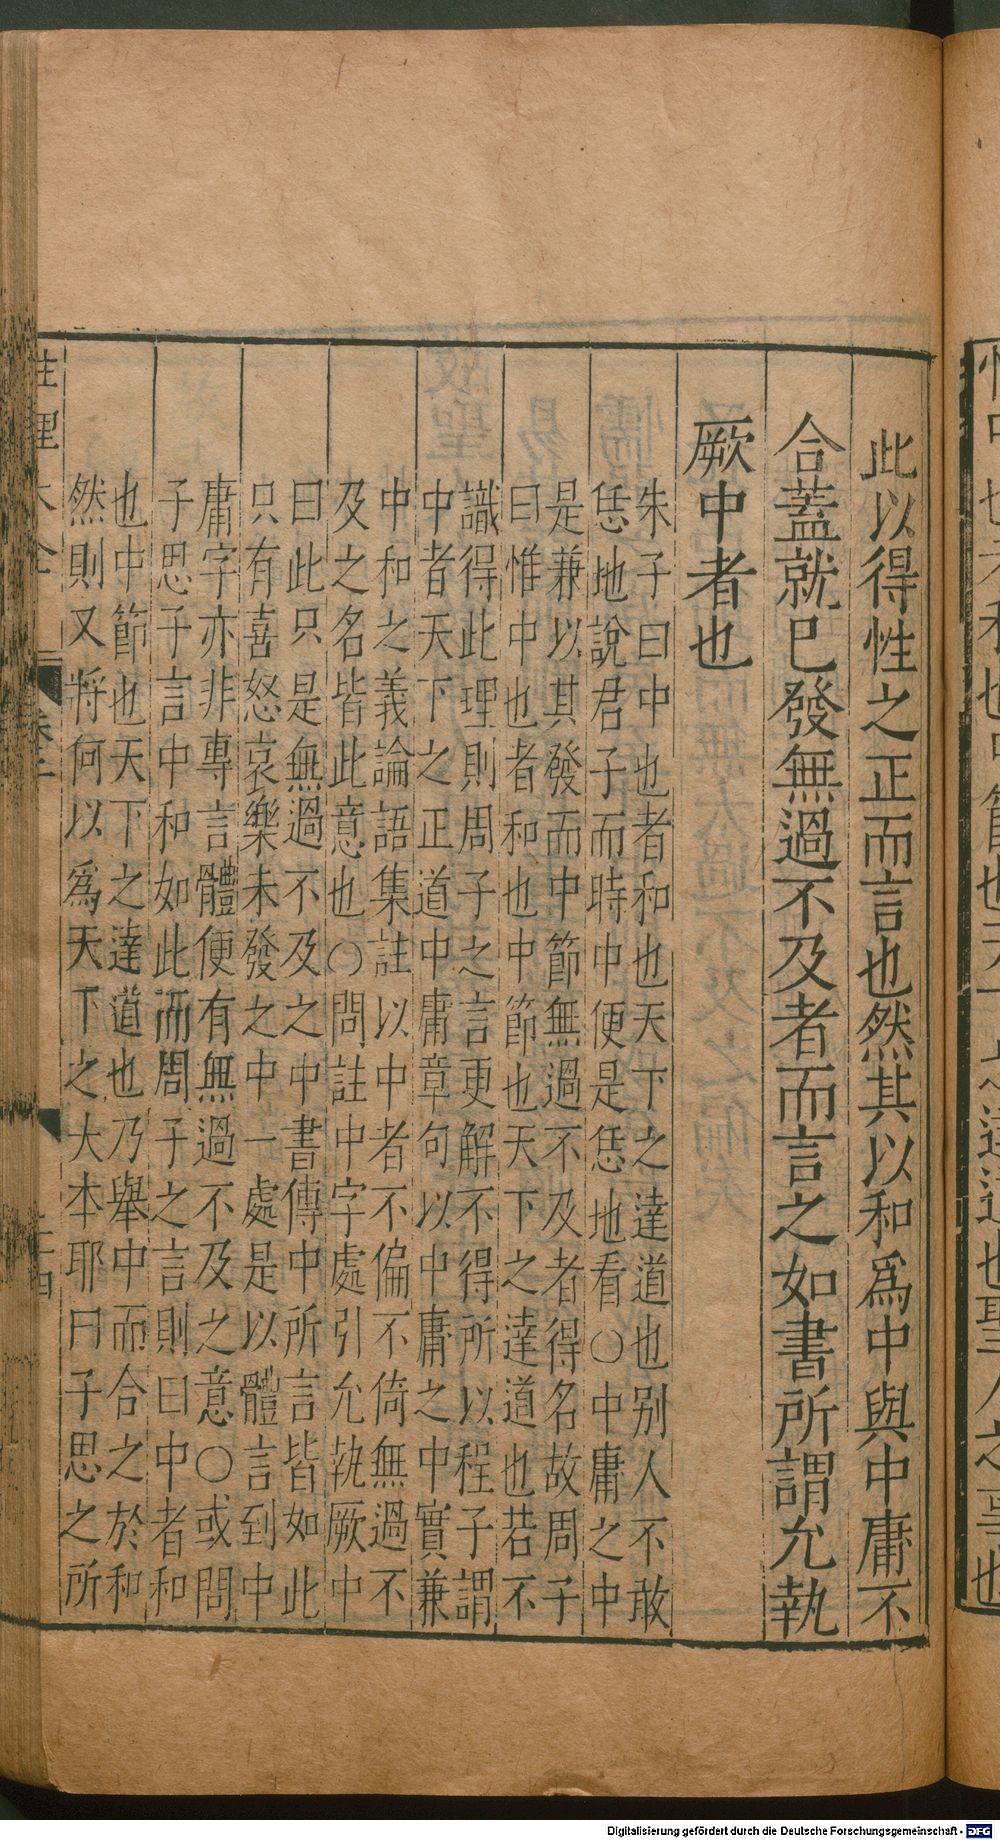 此以得性之正而言也然其以和爲中與中庸不
合蓋就已發無過不及者而言之如書所謂允執
厥中者也
朱子曰中也者和也天下之達道也别人不敢
恁地說君子而時中便是恁地看○中庸之中
是兼以其發而中節無過不及者得名故周子
曰惟中也者和也中節也天下之達道也若不
識得此理則周子之言更解不得所以程子謂
中者天下之正道中庸章句以中庸之中實兼
中和之義論語集註以中者不偏不倚無過不
及之名皆此意也○問註中字處引允執厥中
曰此只是無過不及之中書傳中所言皆如此
只有喜怒哀樂未發之中一處是以體言到中
庸字亦非專言體便有無過不及之意○或問
子思子言中和如此而周子之言則曰中者和
也中節也天下之達道也乃舉中而合之於和
然則又將何以爲天下之大本耶曰子思之所
性理大全
Digitalisierung gefördert durch die Deutsche Forschungsgemeinschaft - DFG